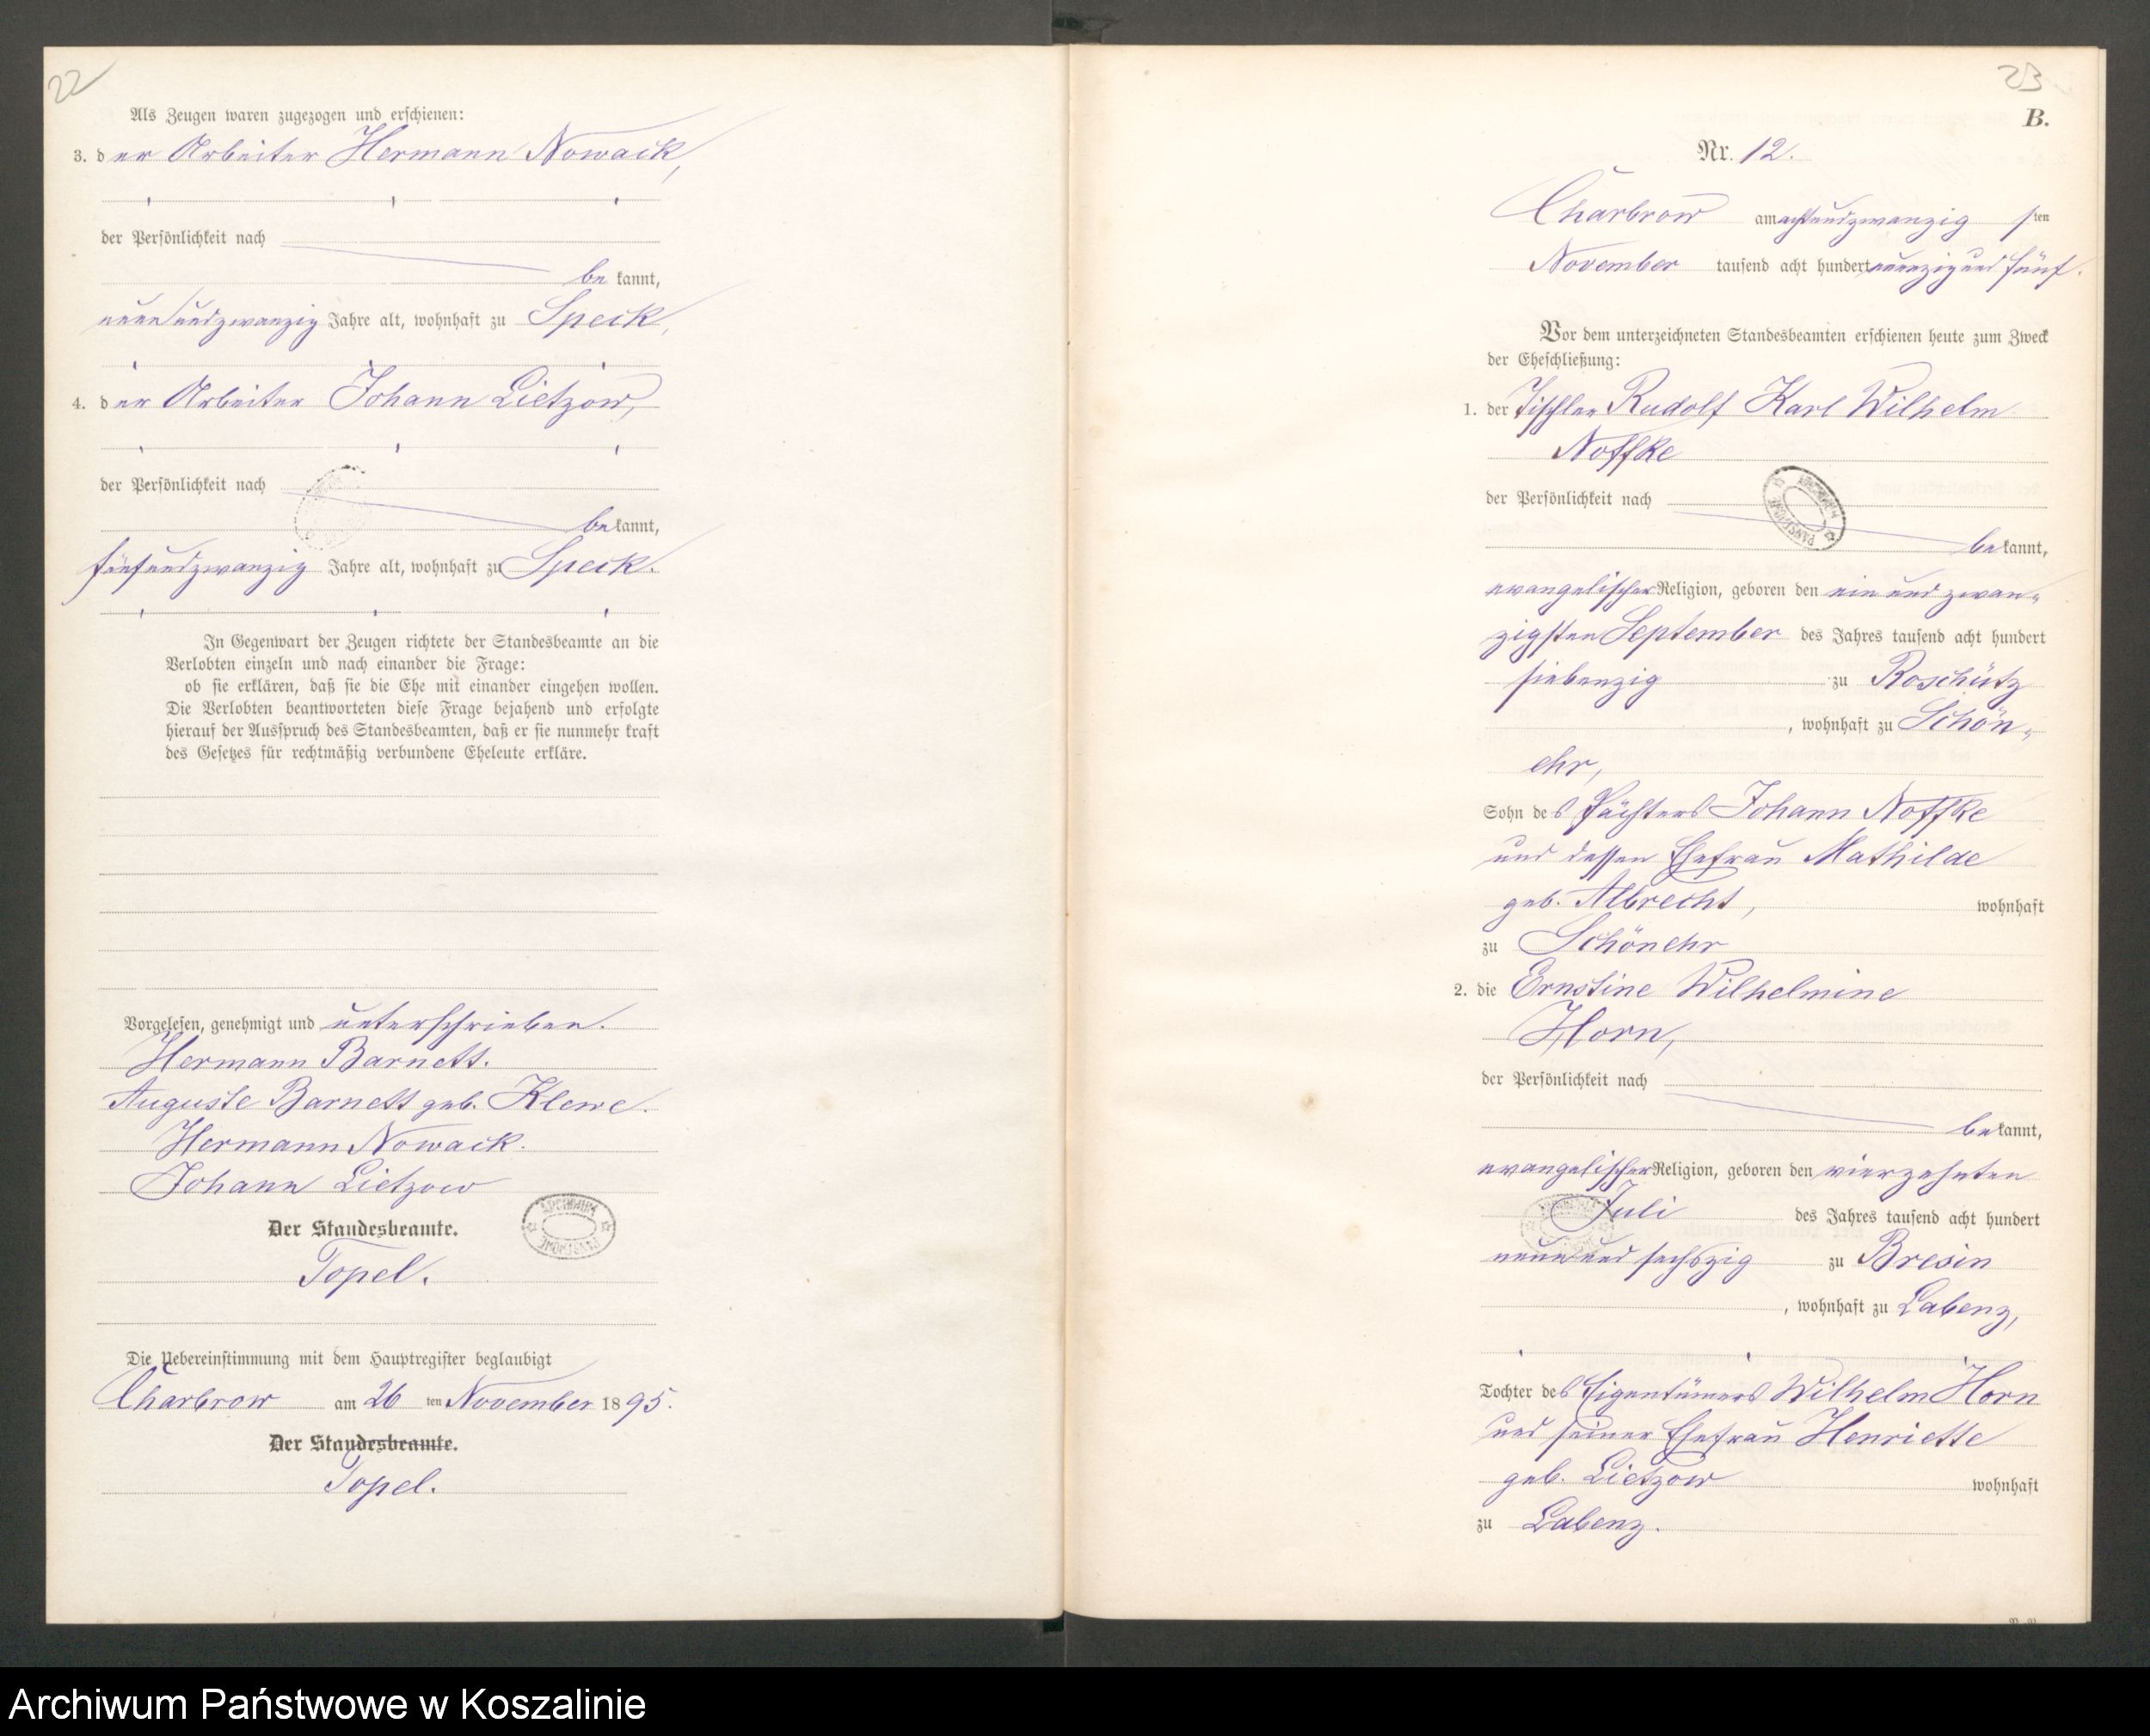 22
Als Zeugen waren zugezogen und erschienen:
3. der Arbeiter Hermann Nowack,
der Persönlichkeit nach
bekannt,
neunundzwanzig Jahre alt, wohnhaft zu Speck,
4. der Arbeiter Johann Lietzow,
der Persönlichkeit nach
bekannt,
fünfundzwanzig Jahre alt, wohnhaft zu Speck.
In Gegenwart der Zeugen richtete der Standesbeamte an die
Verlobten einzeln und nach einander die Frage:
ob sie erklären, daß sie die Ehe mit einander eingehen wollen.
Die Verlobten beantworteten diese Frage bejahend und erfolgte
hierauf der Ausspruch des Standesbeamten, daß er sie nunmehr kraft
des Gesetzes für rechtmäßig verbundene Eheleute erkläre.
Vorgelesen, genehmigt und unterschrieben.
Hermann Barnett.
Auguste Barnett geb. Klewe.
Hermann Nowack.
Johann Lietzow
Der Standesbeamte.
ARCHIWUM PAŃSTWOWE
Topel.
Die Uebereinstimmung mit dem Hauptregister beglaubigt
Charbrow am 26 ten November 1895.
Der Standesbeamte.
Topel.
23
B.
Nr. 12.
Charbrow am achtundzwanzigsten
November tausend acht hundert neunzig und fünf.
Vor dem unterzeichneten Standesbeamten erschienen heute zum Zweck
der Eheschließung:
1. der Tischler Rudolf Karl Wilhelm
Noffke
der Persönlichkeit nach
ARCHIWUM PAŃSTWOWE
bekannt,
evangelischer Religion, geboren den ein und zwan-
zigsten September des Jahres tausend acht hundert
siebenzig zu Roschütz
, wohnhaft zu Schön-
ehr,
Sohn des Pächters Johann Noffke
und dessen Ehefrau Mathilde
geb. Albrecht, wohnhaft
zu Schönehr
2. die Ernstine Wilhelmine
Horn,
der Persönlichkeit nach
bekannt,
evangelischer Religion, geboren den vierzehnten
Juli des Jahres tausend acht hundert
neun und sechszig zu Bresin
, wohnhaft zu Labenz,
Tochter des Eigentümers Wilhelm Horn
und seiner Ehefrau Henriette
geb. Lietzow wohnhaft
zu Labenz.
Archiwum Państwowe w Koszalinie